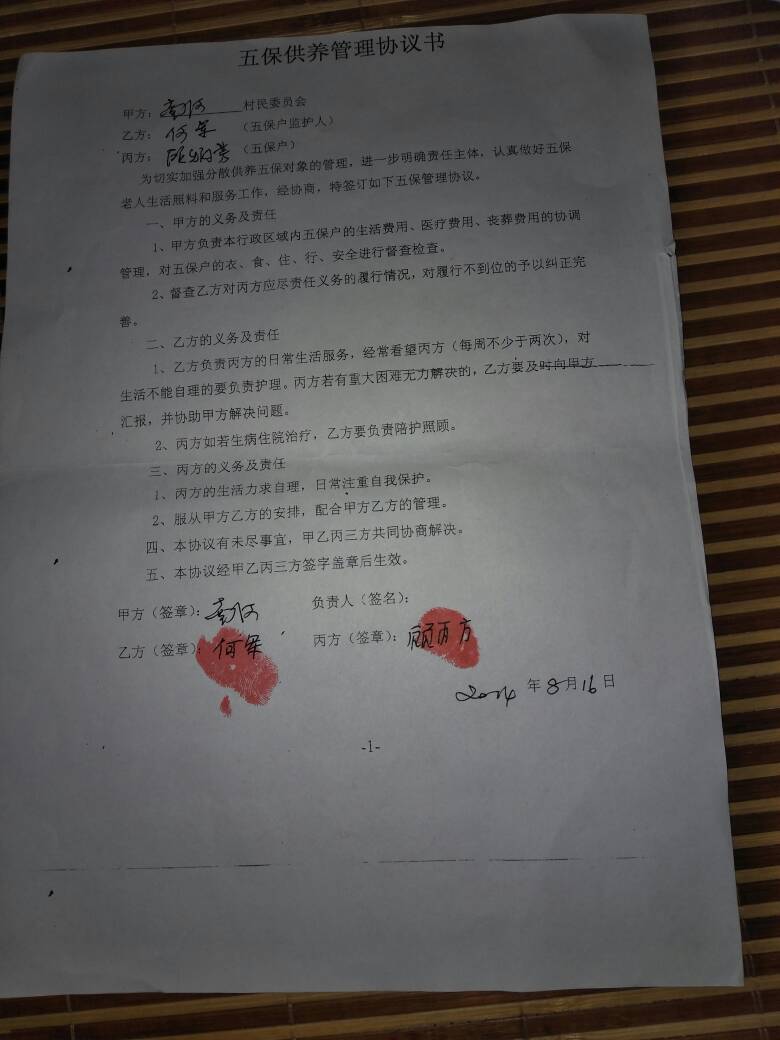 五保供养管理协议书
甲方：南河村民委员会
乙方：何军（五保户监护人）
丙方：（五保户）
为切实加强分散供养五保对象的管理，进一步明确责任主体，认真做好五保
老人生活照料和服务工作，经协商，特签订如下五保管理协议。
一、甲方的义务及责任
1、甲方负责本行政区域内五保户的生活费用、医疗费用、丧葬费用的协调
管理，对五保户的衣、食、住、行、安全进行督查检查。
2、督查乙方对丙方应尽责任义务的履行情况，对履行不到位的予以纠正完
善。
二、乙方的义务及责任
1、乙方负责丙方的日常生活服务，经常看望丙方（每周不少于两次），对
生活不能自理的要负责护理。丙方若有重大困难无力解决的，乙方要及时向甲方
汇报，并协助甲方解决问题。
2、丙方如若生病住院治疗，乙方要负责陪护照顾。
三、丙方的义务及责任
1、丙方的生活力求自理，日常注重自我保护。
2、服从甲方乙方的安排，配合甲方乙方的管理。
四、本协议有未尽事宜，甲乙丙三方共同协商解决。
五、本协议经甲乙丙三方签字盖章后生效。
甲方（签章）：南河 负责人（签名）：
乙方（签章）：何军 丙方（签章）：
2014年8月16日
-1-